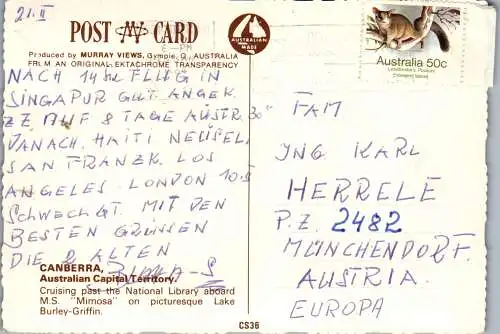 21.II
POST CARD
AUSTRALIAN MADE
Produced by MURRAY VIEWS, Gympie, Q., AUSTRALIA
FROM AN ORIGINAL EKTACHROME TRANSPARENCY
Australia 50c
Leadbeater's Possum
Endangered Species
NACH 14 STD FLUG IN
SINGAPUR GUT ANGEK.
ZZ AUF 8 TAGE AUSTR. 30°
DANACH. HAITI NEUSEL.
SAN FRANZK. LOS
ANGELES. LONDON 10.5
SCHWECHGT. MIT DEN
BESTEN GRÜSSEN
DIE 2 ALTEN
FAM
ING KARL
HERRELE
P.Z. 2482
MÜNCHENDORF.
AUSTRIA.
EUROPA
CANBERRA,
Australian Capital Territory.
Cruising past the National Library aboard
M.S. "Mimosa" on picturesque Lake
Burley-Griffin.
CS36